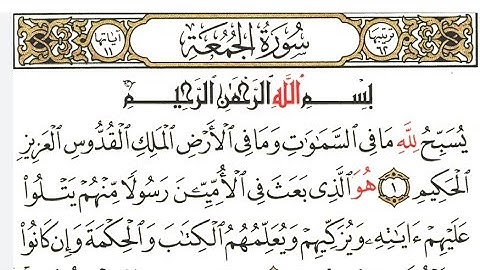 ترتيبها ٦٢ سُورَةُ الْجُمُعَةِ آياتها ١١
بِسْمِ اللَّهِ الرَّحْمَٰنِ الرَّحِيمِ
يُسَبِّحُ لِلَّهِ مَا فِي السَّمَٰوَٰتِ وَمَا فِي ٱلْأَرْضِ ٱلْمَلِكِ ٱلْقُدُّوسِ ٱلْعَزِيزِ
ٱلْحَكِيمِ ١ هُوَ ٱلَّذِي بَعَثَ فِي ٱلْأُمِّيِّـۧنَ رَسُولًا مِّنْهُمْ يَتْلُوا۟
عَلَيْهِمْ ءَايَٰتِهِۦ وَيُزَكِّيهِمْ وَيُعَلِّمُهُمُ ٱلْكِتَٰبَ وَٱلْحِكْمَةَ وَإِن كَانُوا۟